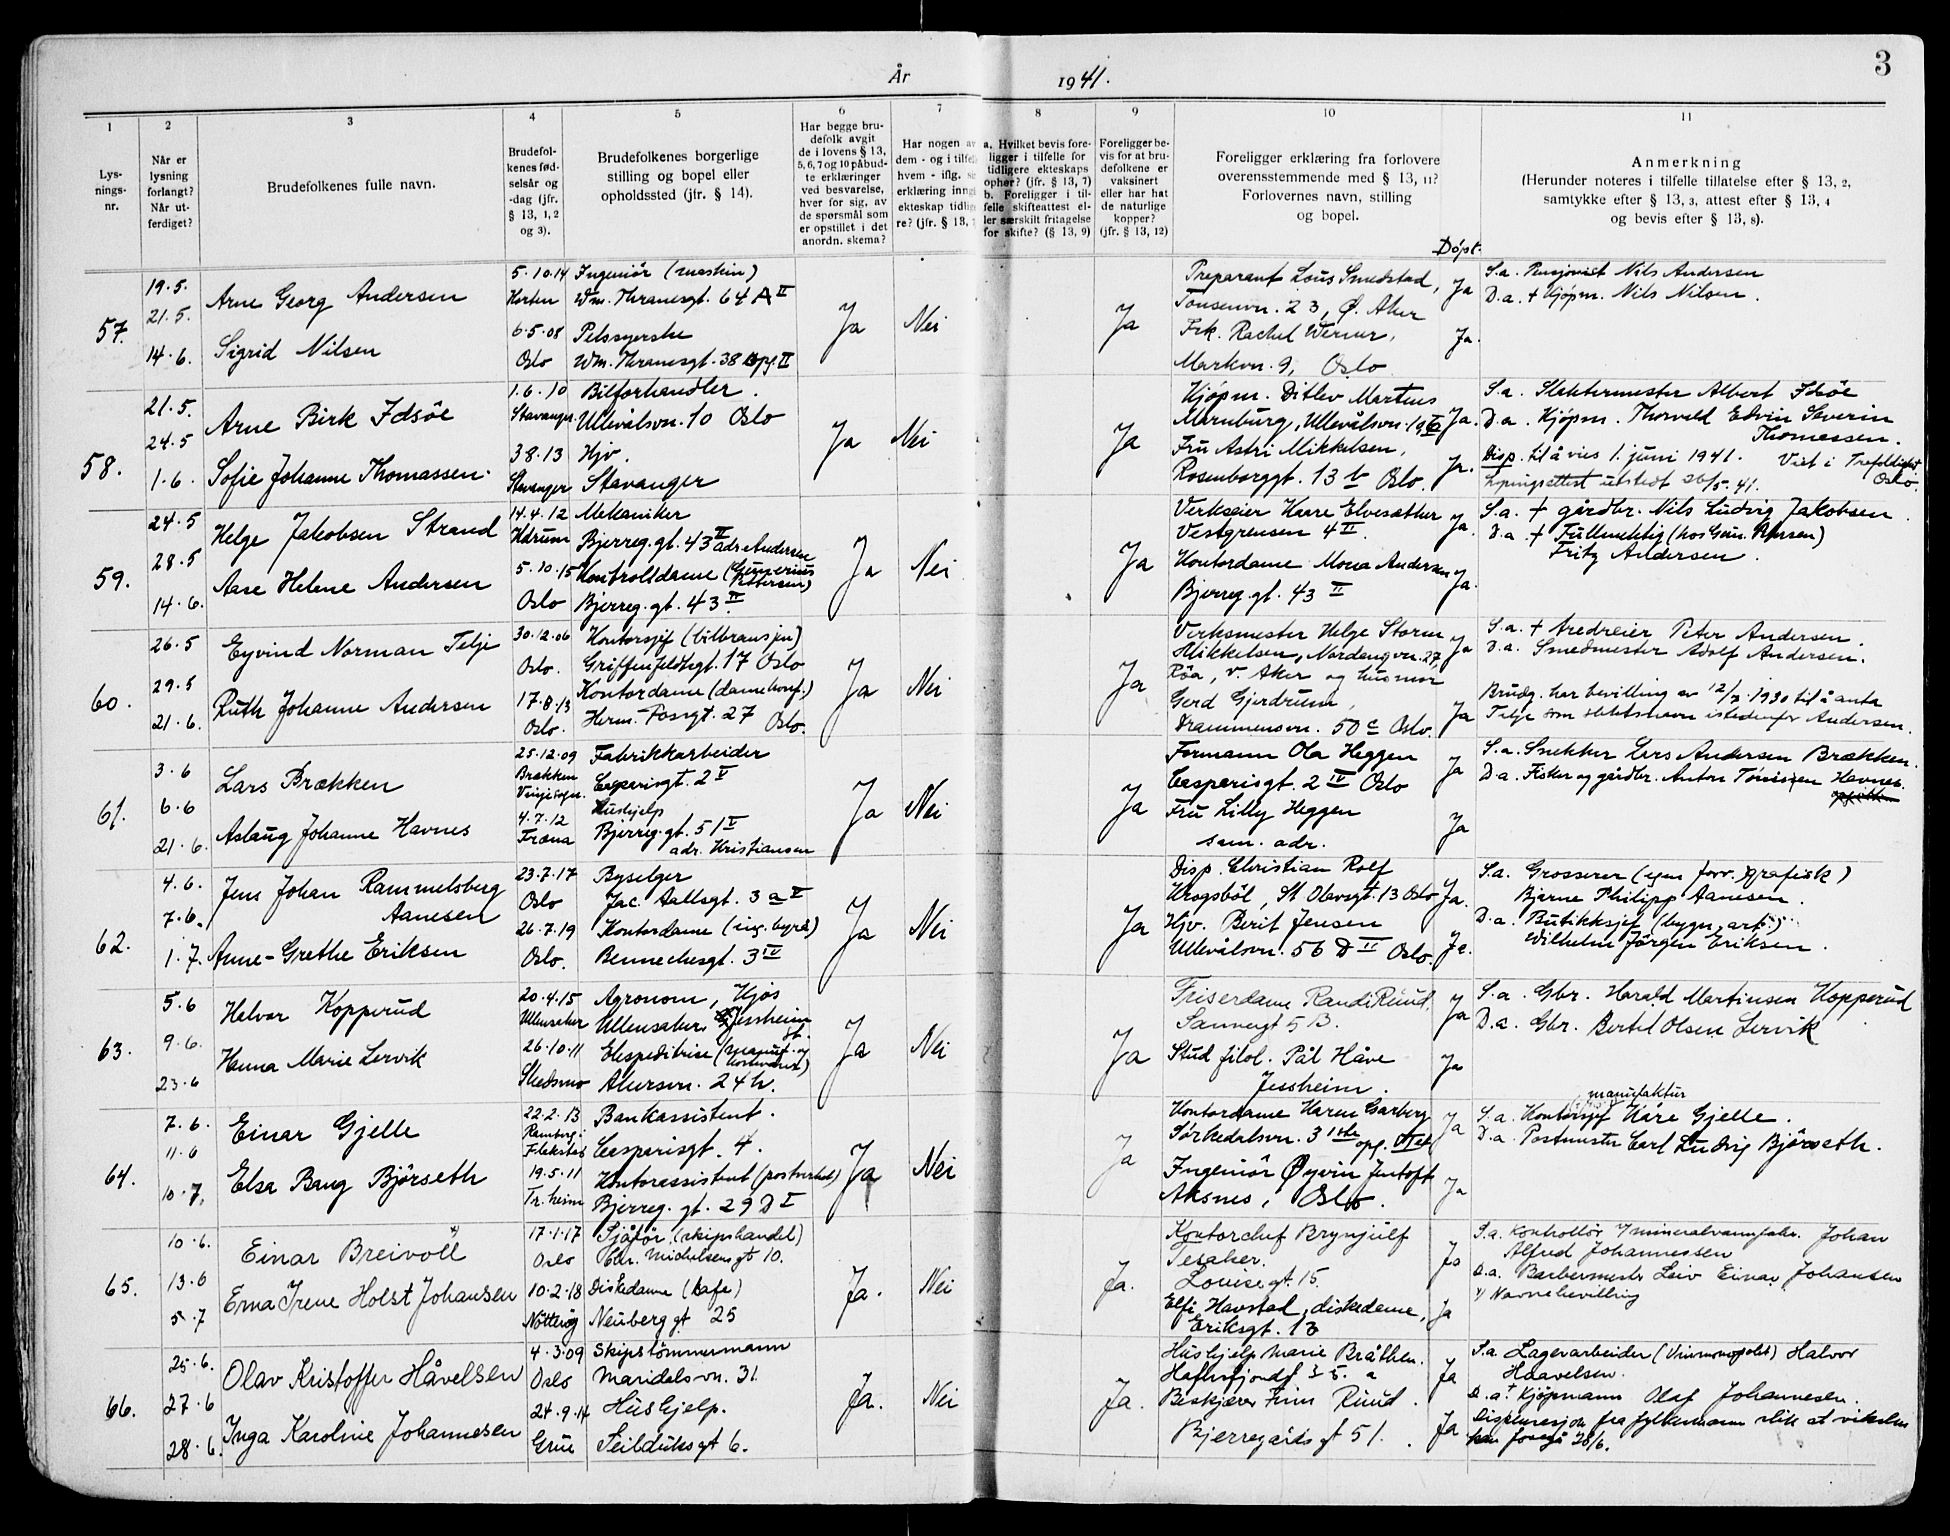 3
År 1941.
1 2 3 4 5 6 7 8 9 10 11
Lys-
nings-
nr.
Når er
lysning
forlangt?
Når ut-
ferdiget?
Brudefolkenes fulle navn.
Brudefol-
kenes fød-
selsår og
-dag (jfr.
§ 13, 1, 2
og 3).
Brudefolkenes borgerlige
stilling og bopel eller
opholdssted (jfr. § 14).
Har begge bru-
defolk avgit
de i lovens § 13,
5, 6, 7 og 10 påbud-
te erklæringer
ved besvarelse,
hver for sig, av
de spørsmål som
er opstillet i det
anordn. skema?
Har nogen av
dem - og i tilfelle
hvem - iflg.
erklæring inngått
ekteskap tidlige-
re? (jfr. § 13,
a. Hvilket bevis fore-
ligger i tilfelle for
tidligere ekteskaps
ophør? (jfr. § 13, 7)
b. Foreligger i til-
felle skifteattest el-
ler særskilt fritagelse
for skifte? (§ 13, 9)
Foreligger be-
vis for at bru-
defolkene er
vaksinert
eller har hat
de naturlige
kopper?
(jfr. § 13, 12)
Foreligger erklæring fra forlovere
overensstemmende med § 13, 11?
Forlovernes navn, stilling
og bopel.
Døpt.
Anmerkning
(Herunder noteres i tilfelle tillatelse efter § 13, 2,
samtykke efter § 13, 3, attest efter § 13, 4
og bevis efter § 13, 8).
57.
19.5.
21.5.
14.6.
Arne Georg Andersen
Sigrid Nilsen
5.10.14
Horten
6.5.08
Oslo
Ingeniør (maskin)
Wm. Thranesgt. 64 A II
Pelssyerske
Wm. Thranesgt. 38 oppg. II
Ja Nei Ja
Preparant Lous Smedstad, Ja
Tonsenvn. 23, Ø. Aker
Frk. Rachel Werner, Ja.
Markvn. 9, Oslo
S.a. Pensjonist Nils Andersen
D.a. + Kjøpm. Nils Nilsen.
58.
21.5.
24.5
1.6.
Arne Birk Idsøe
Sofie Johanne Thomassen.
1.6.10
Stavanger
3.8.13
Stavanger
Bilforhandler.
Ullevålsvn. 10 Oslo
Hjv.
Stavanger
Ja Nei Ja
Kjøpm. Ditlev Martens
Marnburg, Ullevålsvn. 19 Ja.
Fru Astri Mikkelsen,
Rosenborggt. 13 b Oslo. Ja.
S.a. Slaktermester Albert Idsøe
D.a. Kjøpm. Thorvald Edvin Severin
Thomassen.
Disp. til å vies 1. juni 1941. Viet i Trefoldighet
Oslo.
Lysingsattest utstedt 26/5-41.
59.
24.5
28.5
14.6.
Helge Jakobsen Strand
Aase Helene Andersen
14.4.12
Hdrum
5.10.15
Oslo
Mekaniker
Bjerreg.gt. 43 II adr. Andersen
Kontrolldame (Gunerius
Pettersen)
Bjerreg.gt. 43 II
Ja Nei Ja
Verkseier Kaare Elvesæther Ja.
Vestgrensen 4 II.
Kontordame Mona Andersen Ja.
Bjerreg.gt. 43 II
S.a. + gårdbr. Nils Ludvig Jakobsen.
D.a. + Fullmektig (hos Gun. Pettersen)
Fritz Andersen.
60.
26.5
29.5
21.6.
Eyvind Norman Telje
Ruth Johanne Andersen
30.12.06
Oslo.
17.8.13
Oslo.
Kontorsjef (bilbransjen)
Griffenfeldtsgt. 17 Oslo
Kontordame (damekonf.)
Herm. Fossgt. 27 Oslo.
Ja Nei Ja
Verksmester Helge Storm Ja
Mikkelsen, Nordengvn. 27,
Røa, V. Aker og husmor
Gerd Gjerdrum,
Drammensvn. 50 c Oslo. Ja
S.a. + Aredreier Peter Andersen.
D.a. Smedmester Adolf Andersen.
Brudg. har bevilling av 12/2. 1930 til å anta
Telje som slektsnavn istedenfor Andersen.
61.
3.6
6.6
21.6.
Lars Brækken
Aslaug Johanne Havnes
25.12.09
Brækken
Vingelsogn.
4.7.12
Træna
Fabrikkarbeider
Casparisgt. 2 V
Hushjelp
Bjerreg.gt. 51 V
adr. Kristiansen
Ja Nei Ja
Formann Ola Heggen Ja
Casparisgt. 2 IV Oslo
Fru Lilly Heggen Ja
sam. adr.
S.a. Snekker Lars Andersen Brækken.
D.a. Fisker og gårdbr. Anton Tønisen Havnes.
62.
4.6.
7.6.
1.7.
Jens Johan Rammelsberg
Aanesen
Anne-Grethe Eriksen
23.7.17
Oslo
26.7.19
Oslo.
Byselger
Jac. Aallsgt. 3 a V
Kontordame (ing.byrå)
Bennechesgt. 3 IV
Ja Nei Ja
Disp. Christian Rolf
Krogsbøl, St Olavsgt. 13 Oslo Ja.
Hjv. Berit Jensen
Ullevålsvn. 56 D II Oslo. Ja.
S.a. Grosserer (egen forr. grafisk)
Bjarne Philipp Aanesen.
D.a. Butikksjef (bygn. art.)
Wilhelm Jørgen Eriksen.
63.
5.6
9.6.
23.6
Halvor Kopperud
Hanna Marie Lervik
20.4.15
Ullensaker
26.10.11
Skedsmo
Agronom, Kjos
Ullensaker, Jessheim
st.
Ekspeditrise (manuf. og
kortevarer)
Akersvn. 24 h.
Ja Nei Ja
Friserdame Randi Ruud, Ja
Sannergt 5 B.
Stud filol. Pål Håve Ja
Jessheim.
S.a. Gbr. Harald Martinsen Kopperud
D.a. Gbr. Bertel Olsen Lervik
64.
7.6.
11.6
10.7.
Einar Gjelle
Elsa Bang Bjørseth
22.2.13
Ramberg i
Flakstad
19.5.11
Tr.heim
Bankassistent.
Casparisgt. 4.
Kontorassistent (postverket)
Bjerreg.gt. 29 D I
Ja Nei Ja
Kontordame Karen Garberg Ja
Sørkedalsvn. 3
Ingeniør Øyvin Jentoft Ja
Aksnes, Oslo.
manufaktur
S.a. Kontorsjef Kåre Gjelle.
D.a. Postmester Carl Ludvig Bjørseth.
65.
10.6.
13.6
5.7
Einar Breivoll x)
Erna Irene Holst Johansen
17.1.17
Oslo
10.2.18
Nøtterøy
Sjåfør (skipshandel)
Chr. Michelsens gt 10.
Diskedame (kafe)
Neuberg gt 25
Ja. Nei Ja.
Kontorchef Brynjulf
Tesaker. Ja
Louisegt. 15.
Elfi Havstad, diskedame, Ja
Eriksgt. 13
S.a. Kontrollør v/ mineralvannfabr. Johan
Alfred Johannessen
D.a. Barbermester Leiv Einar Johansen
x) Navnebevilling
66.
25.6.
27.6
28.6.
Olav Kristoffer Håvelsen
Inga Karoline Johannesen
4.3.09
Oslo
24.9.14
Grue
Skipstømmermann
Maridalsvn. 31
Hushjelp.
Seilduksgt 6.
Ja. Nei Ja.
Hushjelp Marie Bråthen.
Hafrsfjordgt 5. a Ja
Beskjærer Finn Ruud.
Bjerregårds gt 51. Ja
S.a. Lagerarbeider (Vinmonopolet) Halvor
Haavelsen.
D.a. + Kjøpmann Olaf Johannesen.
Dispensasjon fra fylkesmann slik at vikselen
kan foregå 28/6.